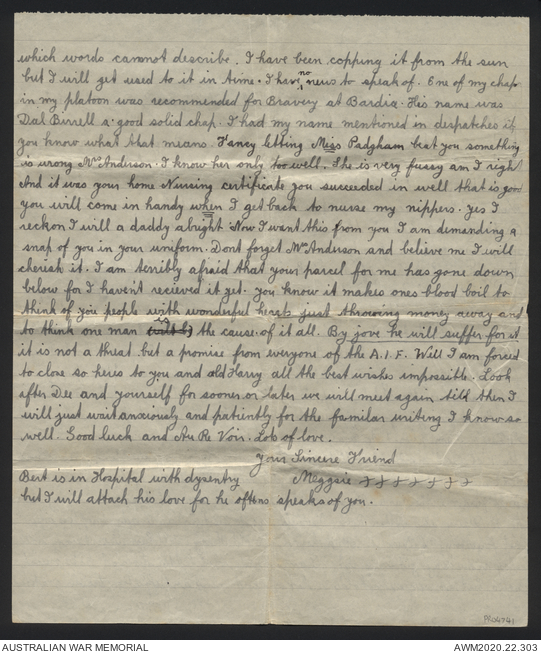 which words cannot describe. I have been copping it from the sun
but I will get used to it in time. I have no news to speak of. One of my chaps
in my platoon was recommended for Bravery at Bardia. His name was
Dal Birrell a good solid chap. I had my name mentioned in despatches if
you know what that means. Fancy letting Miss Padgham beat you something
is wrong Mrs Anderson. I know her only too well. She is very fussy am I right
And it was your home Nursing certificate you succeeded in well that is good
you will come in handy when I get back to nurse my nippers. yes I
reckon I will a daddy alright Now I want this from you I am demanding a
snap of you in your uniform. Dont forget Mrs Anderson and believe me I will
cherish it. I am terribly afraid that your parcel for me has gone down
below for I haven't recieved it yet. you know it makes ones blood boil to
think of you people with wonderful hearts just throwing money away and
to think one man is the cause of it all. By jove he will suffer for it
it is not a threat but a promise from everyone of the A.I.F. Will I am forced
to close so heres to you and old Harry all the best wishes impossible. Look
after Dee and yourself for sooner or later we will meet again till then I
will just wait anxiously and patiently for the familar writing I know so
well. Good luck and Au Re Voir. Lob of love.
Your Sincere Friend
Meggsie xxxxxxxx
Bert is in Hospital with dysentry
but I will attach his love for he oftens speaks of you.
AUSTRALIAN WAR MEMORIAL
AWM2020.22.303